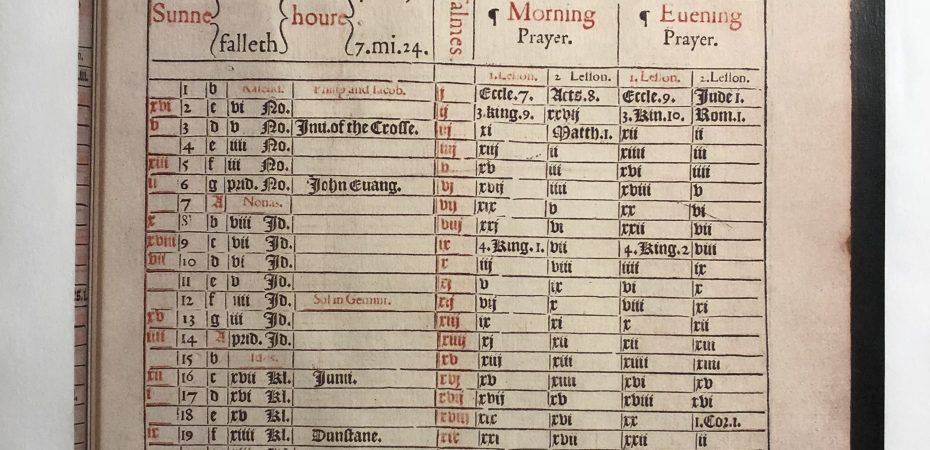 Sunne falleth houre 7.mi.24. Morning Prayer. Euening Prayer.
1.Lesson. 2 Lesson. 1.Lesson. 2.Lesson.
1 b Kalend. Philip and Jacob. j Eccle.7. Acts.8. Eccle.9. Jude 1.
xvi 2 c vi No. ij 3.king.9. xxvij 3.Kin.10. Rom.1.
v 3 d v No. Inu.of the Crosse. iij xi Matth.1. xii ii
4 e iiii No. iiij xiij ii xiiii iii
xiii 5 f iii No. v xv iii xvi iiii
ii 6 g prid. No. John Euang. vj xvij iiii xviii v
7 A Nonas. vij xix v xx vi
x 8 b viii Jd. viij xxj vi xxii vii
xviii 9 c vii Jd. ix 4.King.1. vii 4.King.2 viii
vii 10 d vi Jd. x iij viii iiii ix
11 e v Jd. xj v ix vi x
12 f iiii Jd. Sol in Gemini. xij vij x viii xi
xv 13 g iii Jd. xiij ix xi x xii
iiii 14 A prid. Jd. xiiij xj xii xii xiii
15 b Idus. xv xiij xiii xiiii xiiii
xii 16 c xvii Kl. Junii. xvj xv xiiii xvi xv
i 17 d xvi Kl. xvij xvij xv xviii xvi
18 e xv Kl. xviij xix xvi xx 1.Cor.1.
ix 19 f xiiii Kl. Dunstane. xix xxi xvii xxii ii